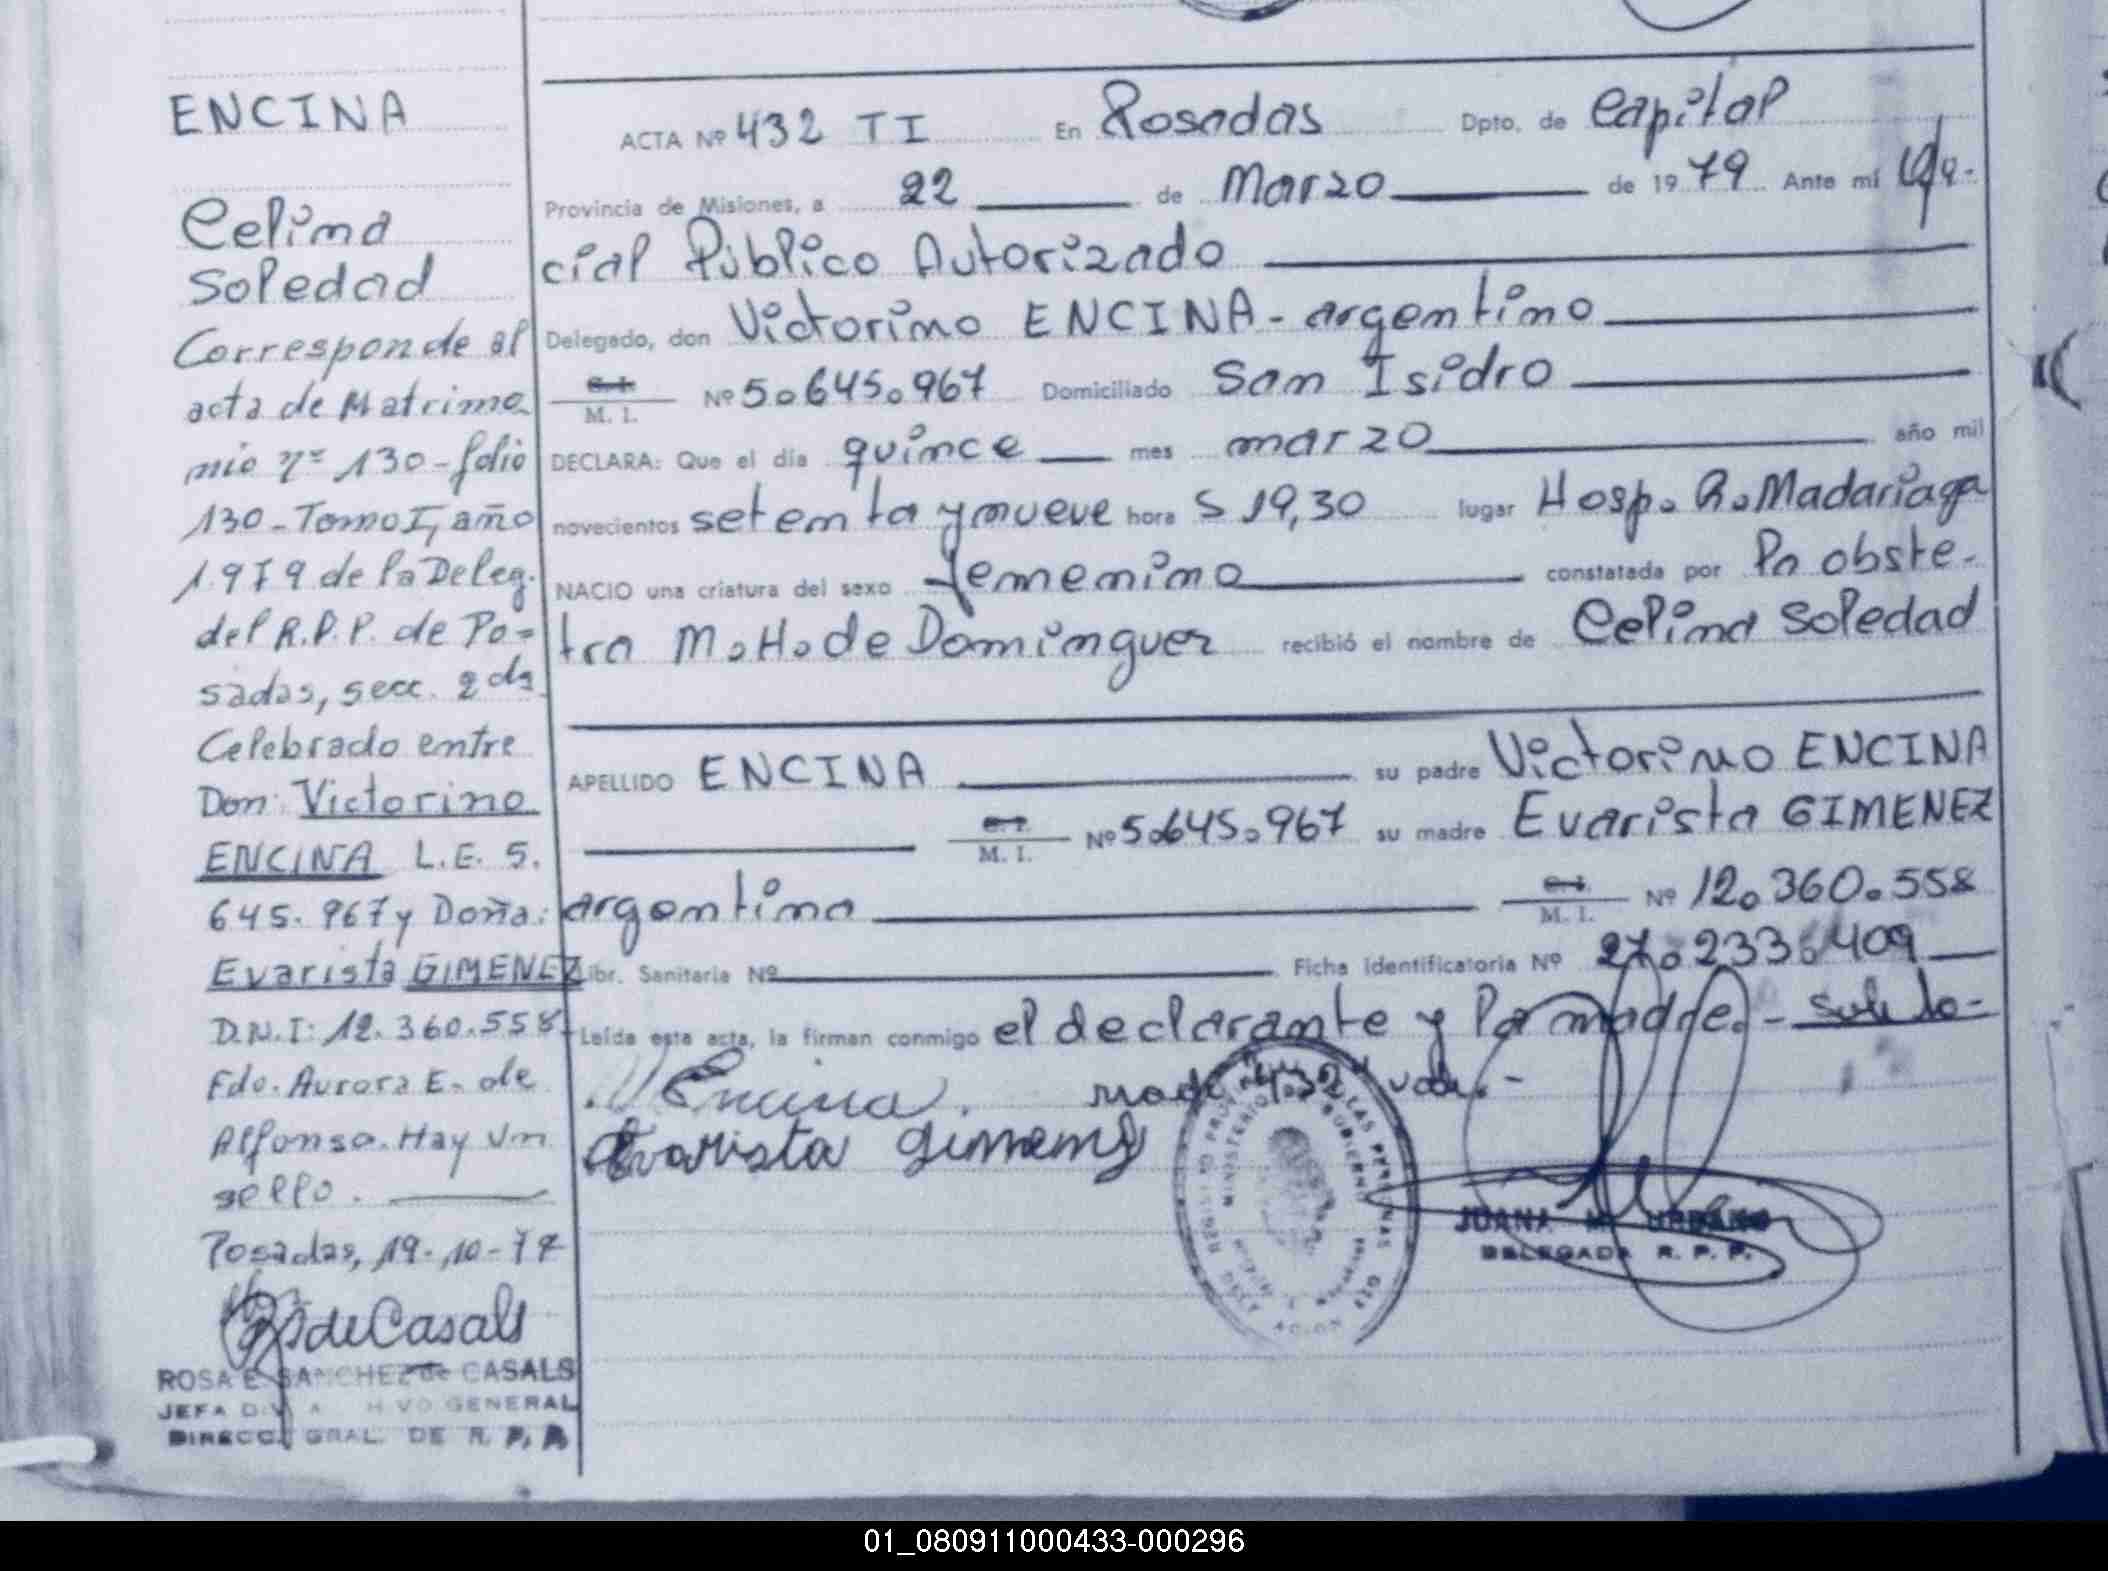 ENCINA
Celina
Soledad
Corresponde al
acta de Matrimo
nio nº 130-folio
130-Tomo I, año
1.979 de la Deleg.
del R.P.P. de Po=
sadas, secc. 2da
Celebrado entre
Don: Victorino
ENCINA L.E. 5.
645.967 y Doña:
Evarista GIMENEZ
D.N.I: 12.360.558
Fdo. Aurora E. de
Alfonso. Hay un
sello.
Posadas, 19-10-79
de Casals
ROSA E. SANCHEZ de CASALS
JEFA DIV. A HIVO GENERAL
DIRECC. GRAL. DE R. P. P.
ACTA Nº 432 TI En Posadas Dpto. de Capital
Provincia de Misiones, a 22 de Marzo de 1979 Ante mi Ofi-
cial Público Autorizado
Delegado, don Victorino ENCINA - argentino
C.I. M. I. Nº 5.645.967 Domiciliado San Isidro
DECLARA: Que el día quince mes marzo año mil
novecientos setenta y nueve hora S 19,30 lugar Hosp. R. Madariaga
NACIO una criatura del sexo femenino constatada por la obste-
tra M.H. de Dominguez recibió el nombre de Celina Soledad
APELLIDO ENCINA su padre Victorino ENCINA
C.I. M. I. Nº 5.645.967 su madre Evarista GIMENEZ
argentina C.I. M. I. Nº 12.360.558
Libr. Sanitaria Nº Ficha Identificatoria Nº 27.233.409
Leída esta acta, la firman conmigo el declarante y la madre.-
Encina.
Evarista Gimenez
JUANA M. URBANO
DELEGADA R. P. P.
01_080911000433-000296